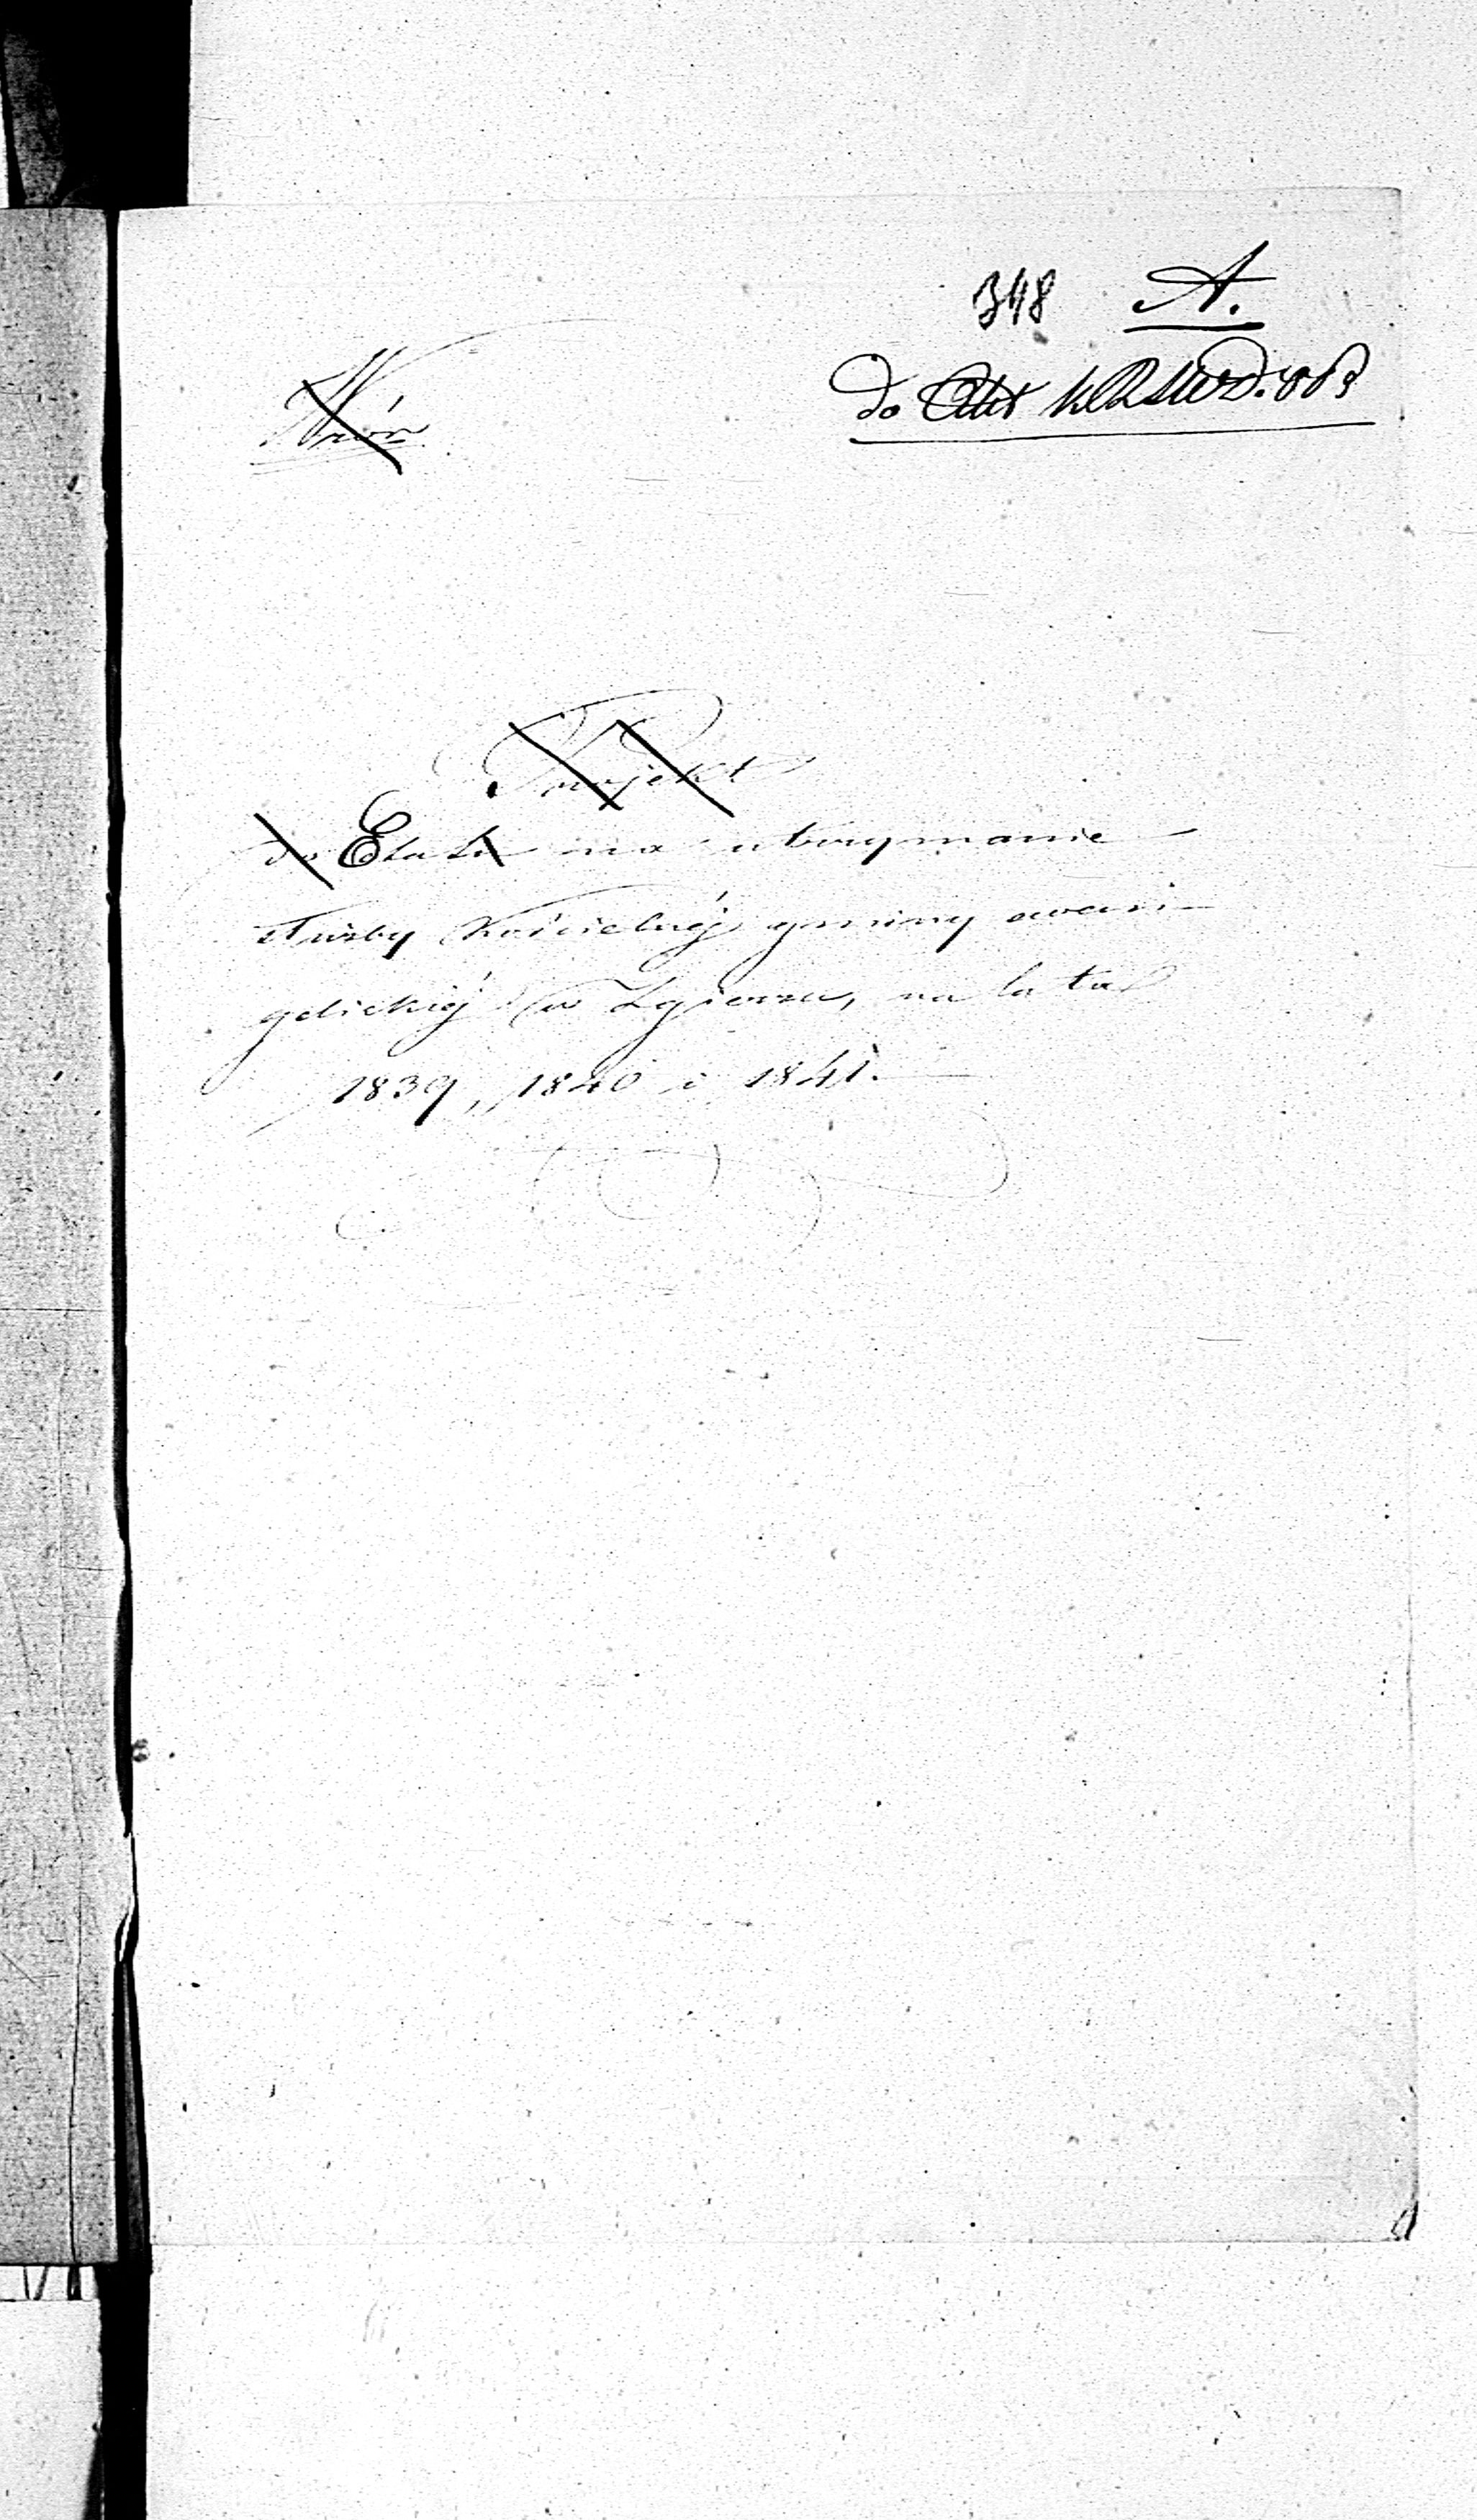 348 A.
do
Wzór
Projekt
do Etatu na utrzymanie
służby Kościelnéj gminy ewani-
gelickiéj w Zgierzu, na lata
1839, 1840 i 1841.